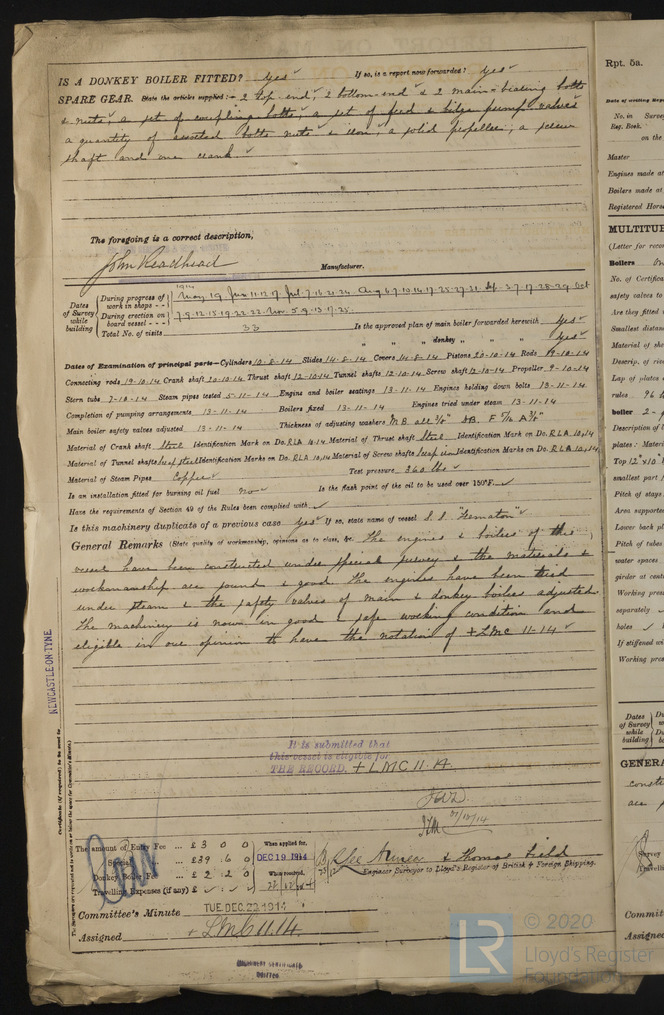 IS A DONKEY BOILER FITTED? yes If so, is a report now forwarded? yes
SPARE GEAR. State the articles supplied:- 2 top end, 2 bottom end & 2 main bearing bolts
& nuts, a set of coupling bolts, a set of feed & bilge pump valves
a quantity of assorted bolts nuts & iron, a solid propeller, a screw
shaft and one crank.
The foregoing is a correct description,
John Readhead Manufacturer.
1914
Dates of Survey while building
During progress of work in shops - - May 19. Jun 11.12.17 Jul. 7.16.21.24. Aug 6.7.10.14.17.25.27.31. Sep. 3.7.17.28.29 Oct
During erection on board vessel - - - 7.9.12.15.19.22.22. Nov. 5.9.13.17.25.
Total No. of visits 33 Is the approved plan of main boiler forwarded herewith yes
" " " donkey " " yes
Dates of Examination of principal parts—Cylinders 10-8-14 Slides 14-8-14 Covers 14-8-14 Pistons 20-10-14 Rods 19-10-14
Connecting rods 19-10-14 Crank shaft 20-10-14 Thrust shaft 12-10-14 Tunnel shafts 12-10-14 Screw shaft 12-10-14 Propeller 9-10-14
Stern tube 7-10-14 Steam pipes tested 5-11-14 Engine and boiler seatings 13-11-14 Engines holding down bolts 13-11-14
Completion of pumping arrangements 13-11-14 Boilers fixed 13-11-14 Engines tried under steam 13-11-14
Main boiler safety valves adjusted 13-11-14 Thickness of adjusting washers M.B. all 3/8" DB. F 5/16 A 3/8"
Material of Crank shaft Steel Identification Mark on Do. RLA 10.14 Material of Thrust shaft Steel Identification Mark on Do. RLA 10.14
Material of Tunnel shafts Identification Marks on Do. RLA 10.14 Material of Screw shafts Identification Marks on Do. RLA 10.14
Material of Steam Pipes Copper Test pressure 360 lbs
Is an installation fitted for burning oil fuel no Is the flash point of the oil to be used over 150°F.
Have the requirements of Section 49 of the Rules been complied with
Is this machinery duplicate of a previous case yes If so, state name of vessel S.S.
General Remarks (State quality of workmanship, opinions as to class, &c. The engines & boilers of this
vessel have been constructed under special survey & the materials &
workmanship are sound & good. The engines have been tried
under steam & the safety valves of main & donkey boilers adjusted
The machinery is now in good & safe working condition and
eligible in our opinion to have the notation of + LMC 11-14
It is submitted that
this vessel is eligible for
THE RECORD. + LMC 11.14.
NEWCASTLE-ON-TYNE
The amount of Entry Fee ... £ 3 0 0 When applied for,
Special ... £ 39 6 0 DEC 19 1914
Donkey Boiler Fee ... £ 2 2 0 When received,
Travelling Expenses (if any) £
& Thomas Field
Engineer Surveyor to Lloyd's Register of British & Foreign Shipping.
Committee's Minute TUE. DEC. 22 1914
Assigned + LMC 11.14.
Rpt. 5a.
Date of writing Rep
No. in Survey
Reg. Book.
on the
Master
Engines made at
Boilers made at
Registered Horse
MULTITU
(Letter for recor
Boilers
No. of Certifica
safety valves to
Are they fitted
Smallest distan
Material of she
Descrip. of rive
Lap of plates
rules
boiler
Description of
plates: Materi
Top
smallest part
Pitch of stays
Area supported
Lower back pl
Pitch of tubes
water spaces
girder at cent
Working press
separately
holes
If stiffened wi
Working pres
Dates of Survey while building
GENERA
Survey
Travelli
Committ
Assigned
© 2020
LR
Lloyd's Register
Foundation